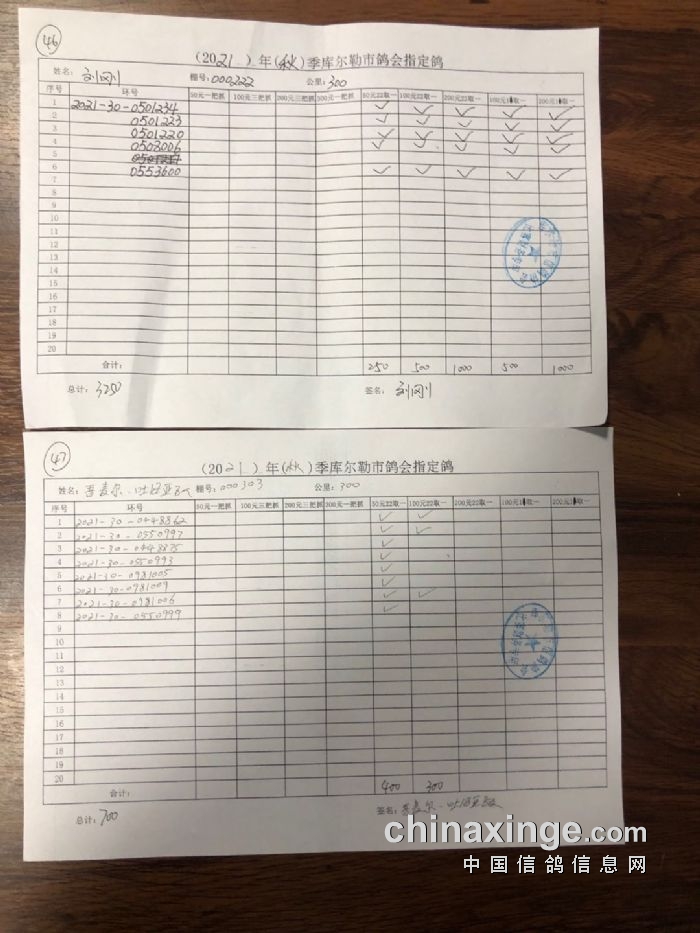 46
(2021)年(秋)季库尔勒市鸽会指定鸽
姓名: 刘刚 棚号: 000222 公里: 300
序号 环号 50元一把抓 100元三把抓 200元三把抓 300元一把抓 50元22取一 100元22取一 200元22取一 100元1取一 200元1取一
1 2021-30-0501234 ✓ ✓ ✓ ✓ ✓
2 0501223 ✓ ✓ ✓ ✓ ✓
3 0501220 ✓ ✓ ✓ ✓ ✓
4 0508006 ✓ ✓ ✓ ✓ ✓
5
6 0553600 ✓ ✓ ✓ ✓ ✓
7
8
9
10
11
12
13
14
15
16
17
18
19
20
合计: 250 500 1000 500 1000
总计: 3250 签名: 刘刚
47
(2021)年(秋)季库尔勒市鸽会指定鸽
姓名: 棚号: 000303 公里: 300
序号 环号 50元一把抓 100元三把抓 200元三把抓 300元一把抓 50元22取一 100元22取一 200元22取一 100元1取一 200元1取一
1 2021-30-0448862 ✓ ✓
2 2021-30-0550997 ✓ ✓
3 2021-30-0448875 ✓
4 2021-30-0550993 ✓
5 2021-30-0981005 ✓
6 2021-30-0981009 ✓
7 2021-30-0981006 ✓ ✓
8 2021-30-0550999 ✓
9
10
11
12
13
14
15
16
17
18
19
20
合计: 400 300
总计: 700 签名:
chinaxinge.com
中国信鸽信息网